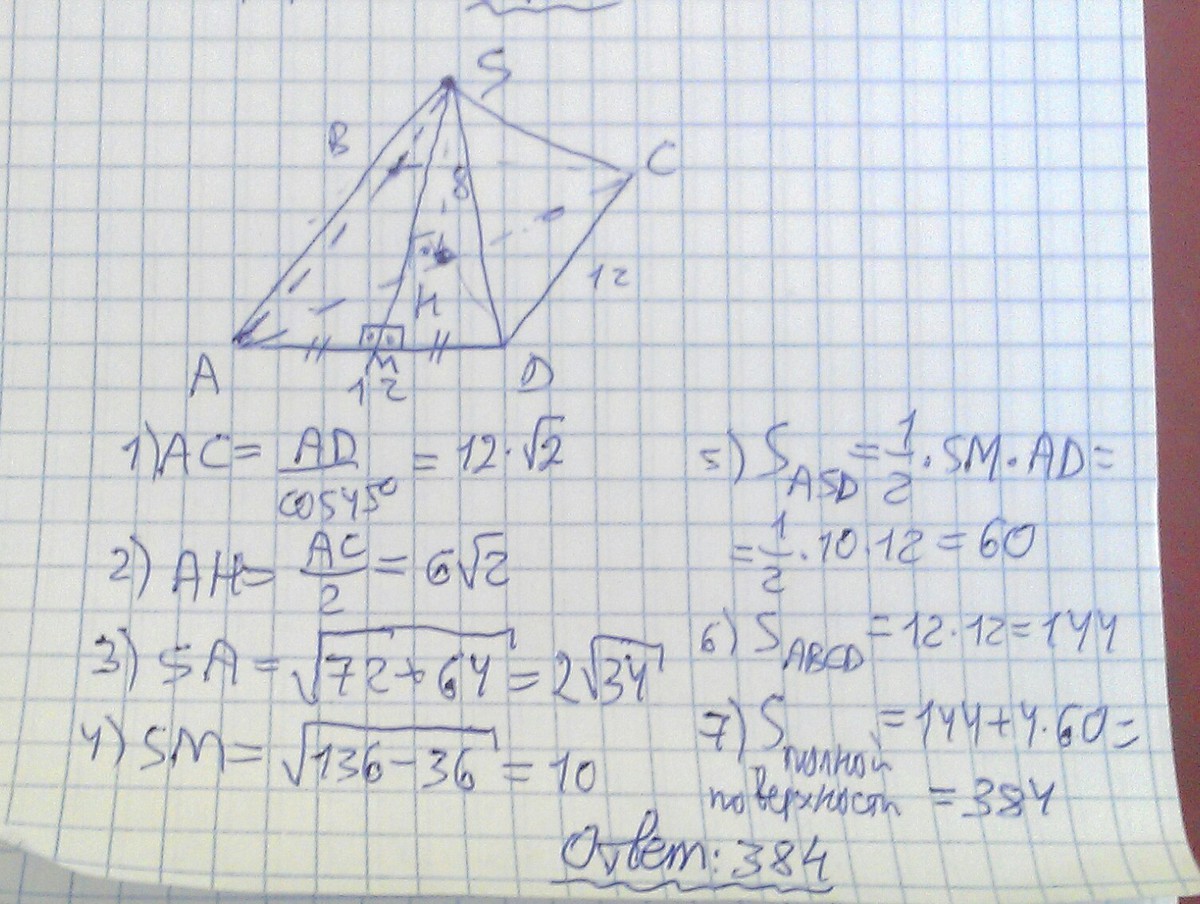 S
B
C
8
H
12
A
M
12
D
1) AC = AD/cos45° = 12·√2
2) AH = AC/2 = 6√2
3) SA = √(72+64) = 2√34
4) SM = √(136−36) = 10
5) S_ASD = 1/2·SM·AD =
= 1/2·10·12 = 60
6) S_ABCD = 12·12 = 144
7) S полной поверхности = 144+4·60 =
= 384
Ответ: 384